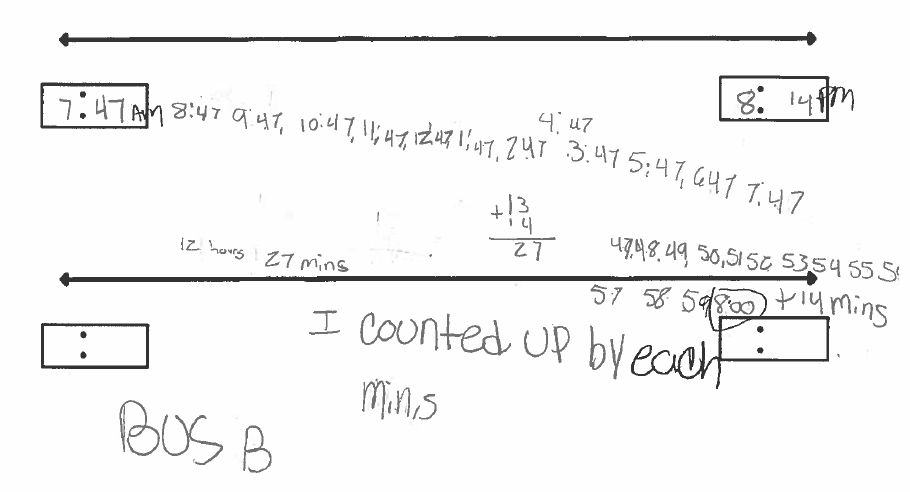 7:47 AM 8:47 9:47, 10:47, 11:47, 12:47, 1:47, 2:47 3:47 4:47 5:47, 6:47 7:47 8: 14 PM
+13
14
27
12 hours 27 mins
47,48,49, 50,51 52, 53,54 55 56
57 58 59 8:00 +14 mins
: :
I counted up by each
mins
BUS B